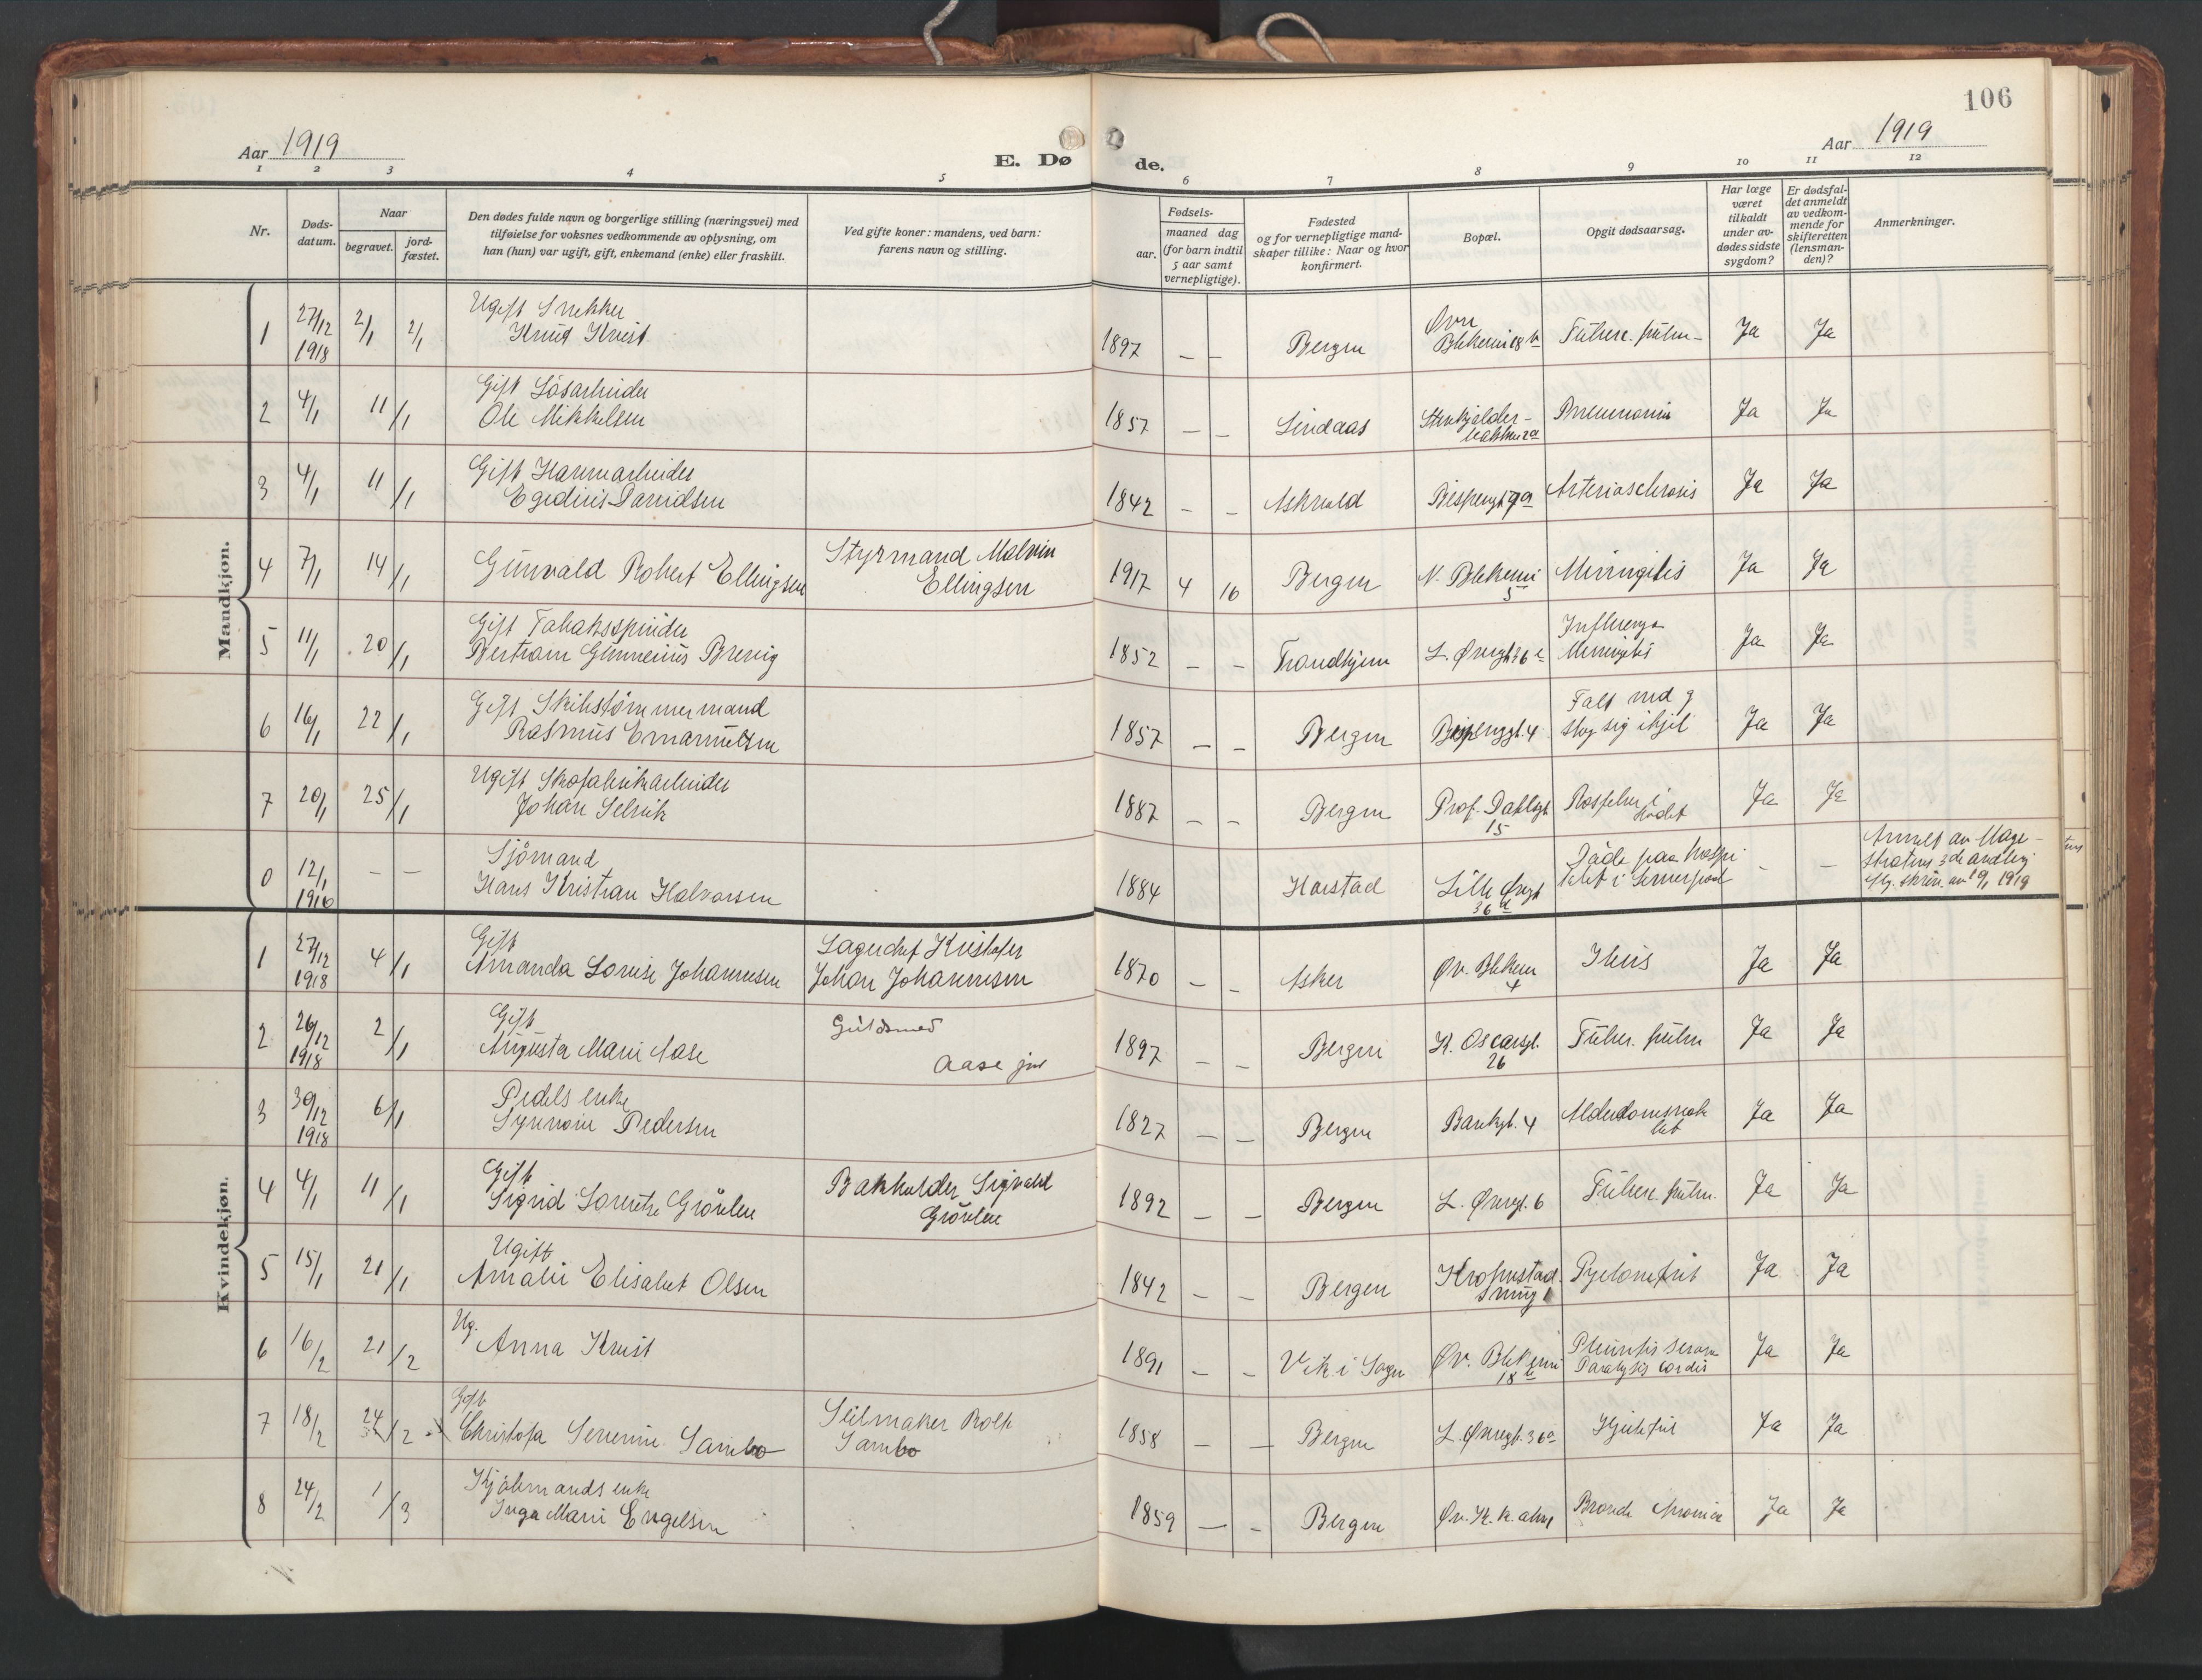 106
Aar 1919
E. Dø
de.
Aar 1919
1 2 3 4 5
6 7 8 9 10 11 12
Nr.
Døds-
datum.
Naar
begravet.
jord-
fæstet.
Den dødes fulde navn og borgerlige stilling (næringsvei) med
tilføielse for voksnes vedkommende av oplysning, om
han (hun) var ugift, gift, enkemand (enke) eller fraskilt.
Ved gifte koner: mandens, ved barn:
farens navn og stilling.
Fødsels-
aar.
maaned dag
(for barn indtil
5 aar samt
vernepligtige).
Fødested
og for vernepligtige mand-
skaper tillike: Naar og hvor
konfirmert.
Bopæl.
Opgit dødsaarsag.
Har læge
været
tilkaldt
under av-
dødes sidste
sygdom?
Er dødsfal-
det anmeldt
av vedkom-
mende for
skifteretten
(lensman-
den)?
Anmerkninger.
Mandkjøn.
1 27/12 1918 2/1 2/1 Ugift Snekker
Knud Kvist 1897 — — Bergen Øvre
Blekevei 18 b Tuberc. pulm— Ja Ja
2 4/1 11/1 Gift Løsarbeider
Ole Mikkelsen 1857 — — Lindaas Stenkjelder-
bakken 2a Pneumonia Ja Ja
3 4/1 11/1 Gift Havnearbeider
Egedius Davidsen 1842 — — Askvold Bispengt 9a Arteriosclerosis Ja Ja
4 7/1 14/1 Gunvald Robert Ellingsen Styrmand Malvin
Ellingsen 1917 4 16 Bergen N. Blekevei
5 Meningitis Ja Ja
5 11/1 20/1 Gift Tobaksspinder
Bertram Gunnerius Brevig 1852 — — Trondhjem L. Øvregt 36 c Influenza
Meningitis Ja Ja
6 16/1 22/1 Gift Skibstømmermand
Rasmus Emanuelsen 1857 — — Bergen Bispenggt. 4 Falt ned og
slog sig ihjel Ja Ja
7 20/1 25/1 Ugift Skofabrikarbeider
Johan Selvik 1887 — — Bergen Prof. Dahlsgt
15 hodet Ja Ja
0 12/1 1916 — — Sjömand
Hans Kristian Halvorsen 1884 Harstad Lille Øvregt
36 d Døde paa hospi
talet i — — Anmeldt av Mage-
stratens 3de avdeling
skriv. av 10/1 1919
Kvindekjøn.
1 27/12 1918 4/1 Gift
Amanda Lovise Johannesen Lagerchef Kristofer
Johan Johannesen 1870 — — Asker Øv. Blekeve
4 Ileus Ja Ja
2 26/12 1918 2/1 Gift
Augusta Marie Aase Guldsmed
Aase jun 1897 — — Bergen K. Oscarsgt.
26 Tuberc. pulm Ja Ja
3 30/12 1918 6/1 Pedels enke
Synnøve Pedersen 1827 — — Bergen Bankgt. 4 Alderdomssvak
het Ja Ja
4 4/1 11/1 Gift
Sigrid Lorentze Grövlen Bokholder Sigvald
Grövlen 1892 — — Bergen L. Øvregt. 6 Tuberc. pulm. Ja Ja
5 15/1 21/1 Ugift
Amalie Elisabet Olsen 1842 — — Bergen Krohnstad
smug 1 Pyelonefrit Ja Ja
6 16/2 21/2 Ug.
Anna Kvist 1891 — — Vik i Sogn Øv. Blekevei
18 b Pleuritis serosa
Paralysis cordis Ja Ja
7 18/2 24/2 Gift
Christofa Severine Sambo Seilmaker Rolf
Sambo 1858 — — Bergen L. Øvregt. 36a Hjertefeil Ja Ja
8 24/2 1/3 Kjøbmands enke
Inga Marie Engelsen 1859 — — Bergen Bronch. chronica Ja Ja